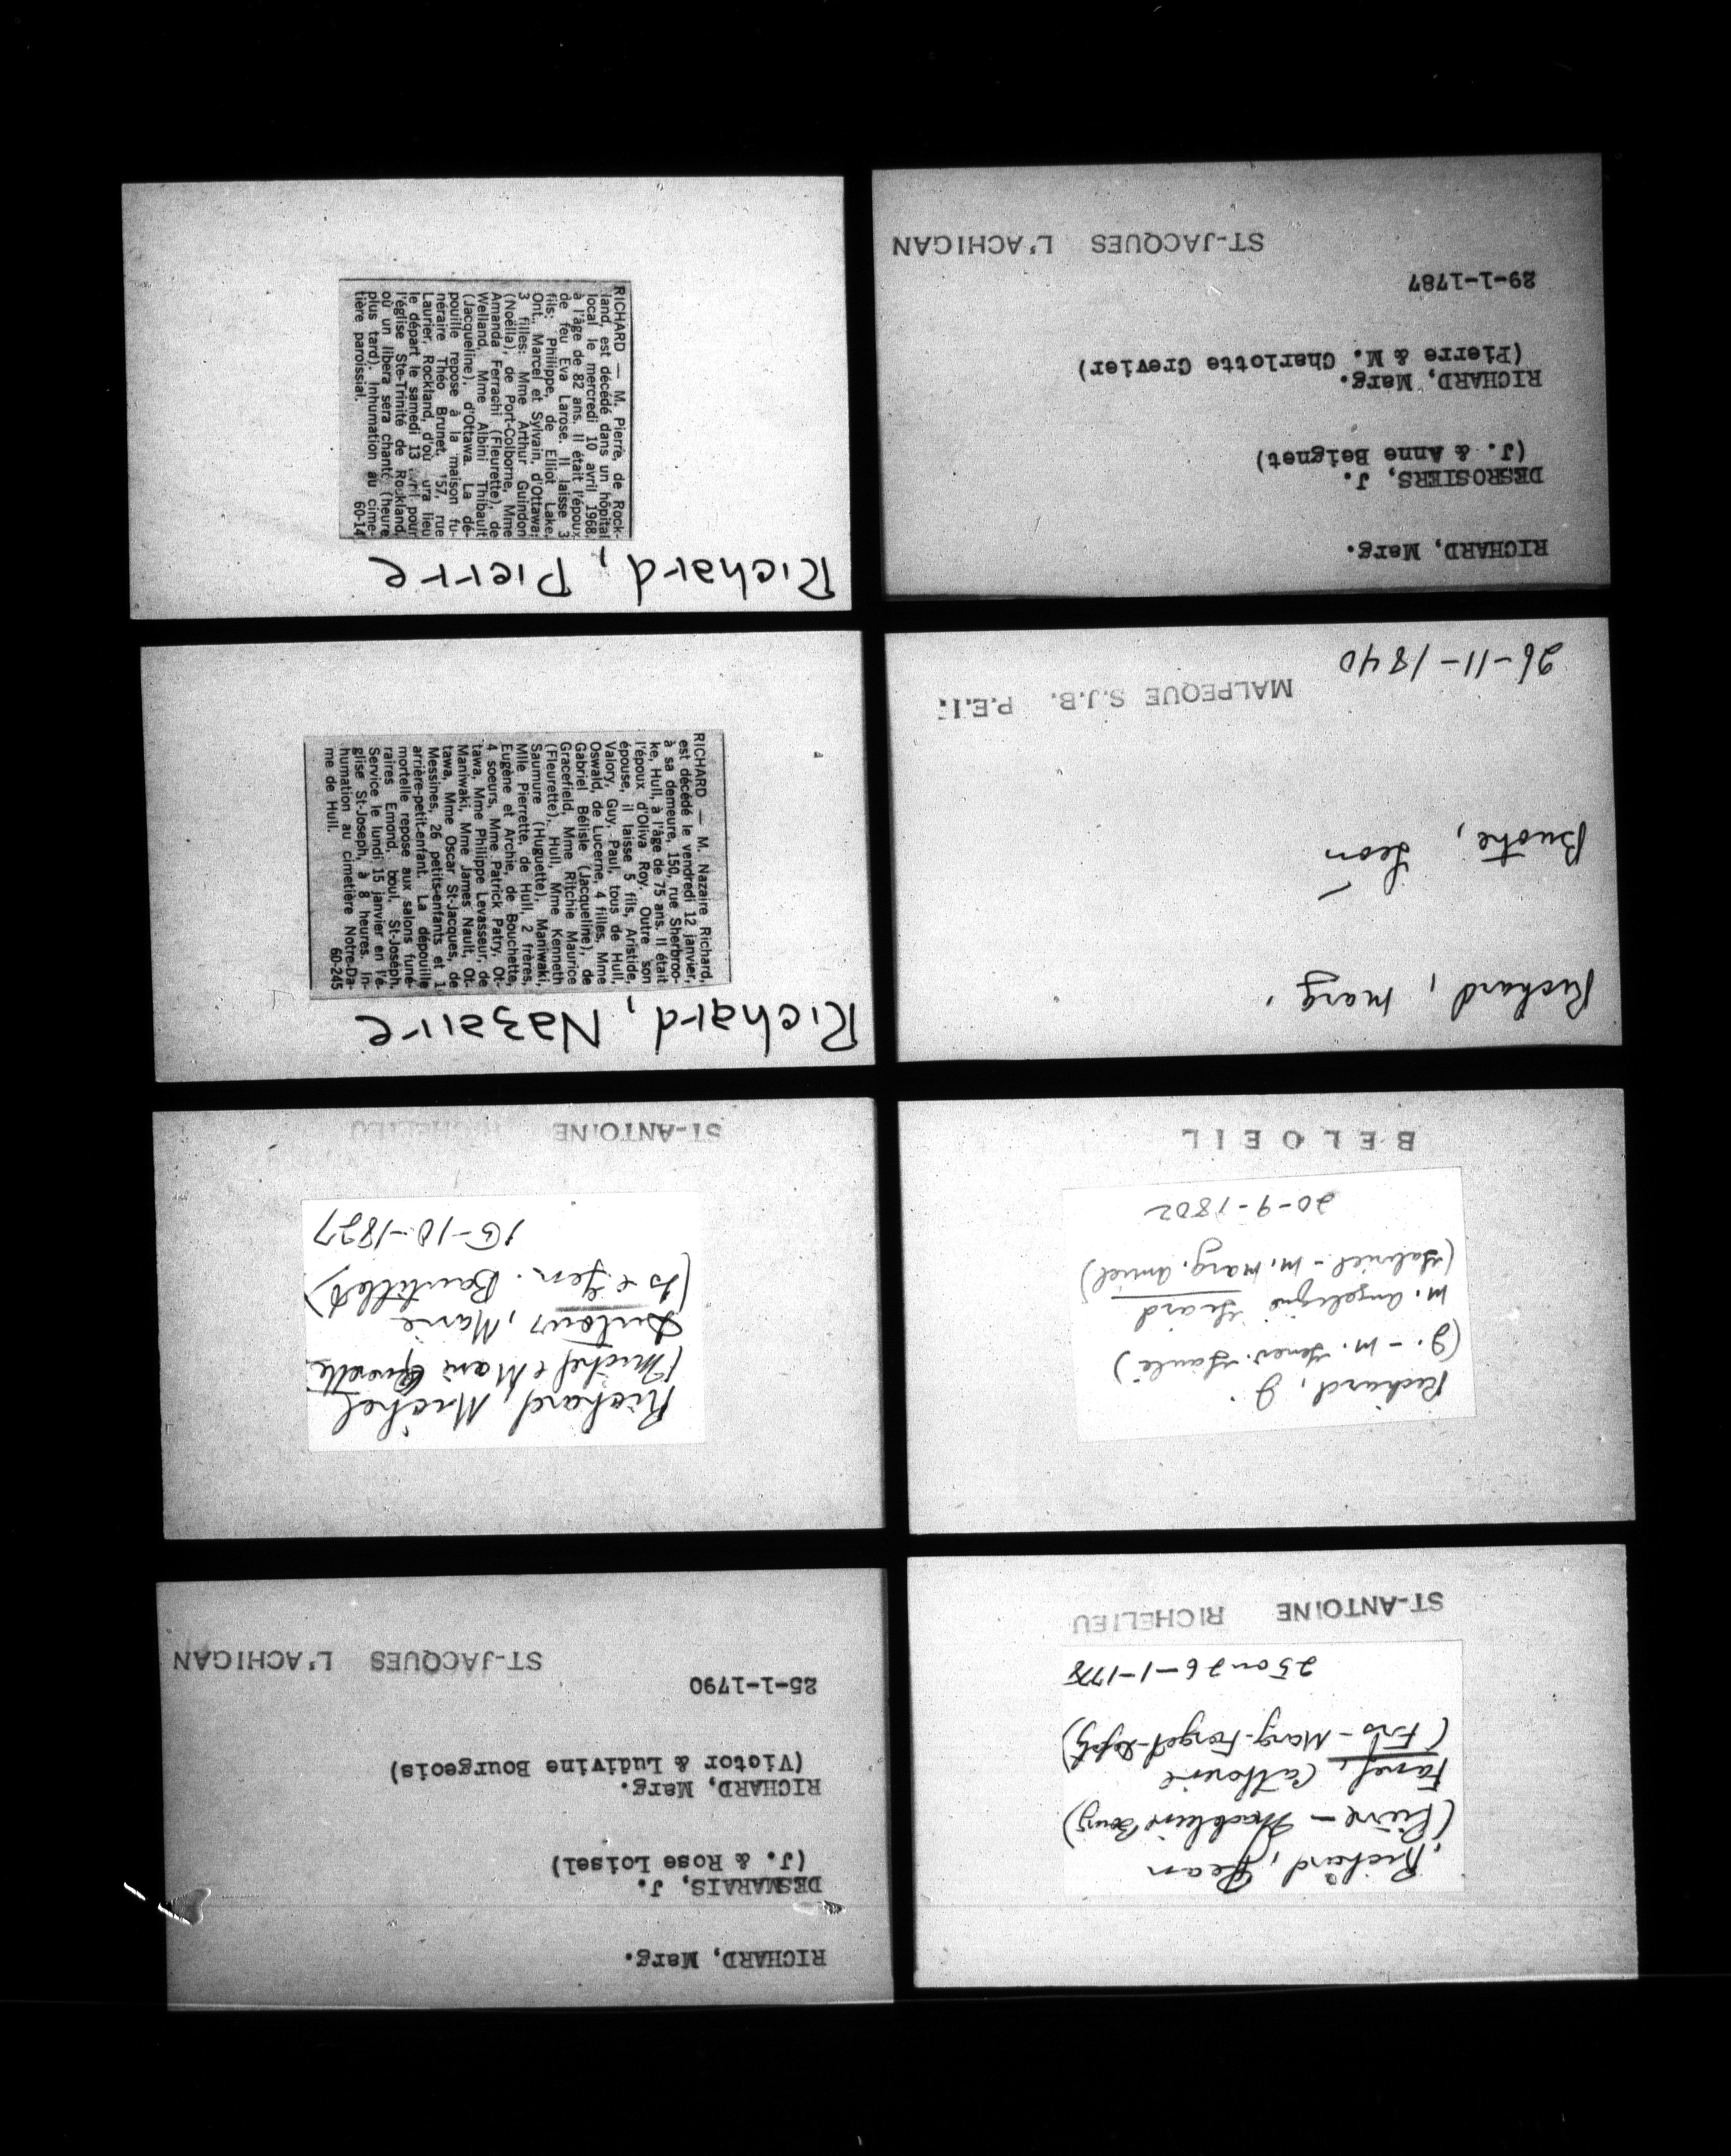 RICHARD, Marg.
DESMARAIS, J.
(J. & Rose Loisel)
RICHARD, Marg.
(Victor & Ludivine Bourgeois)
25-1-1790
ST-JACQUES L'ACHIGAN
Richard, Michel
(Michel & Marie
Dutour, Marie
(Js & Gen.
10-1827
ST-ANTOINE RICHELIEU
Richard, Nazaire
RICHARD — M. Nazaire Richard,
est décédé le vendredi 12 janvier,
à sa demeure, 150, rue Sherbroo-
ke, Hull, à l'âge de 75 ans. Il était
l'époux d'Oliva Roy. Outre son
épouse, il laisse 5 fils, Aristide,
Valory, Guy, Paul, tous de Hull,
Oswald, de Lucerne, 4 filles, Mme
Gabriel Bélisle (Jacqueline), de
Gracefield, Mme Ritchie Maurice
(Fleurette), Hull, Mme Kenneth
Saumure (Huguette), Maniwaki,
Mlle Pierrette, de Hull, 2 frères,
Eugène et Archie, de Bouchette,
4 soeurs, Mme Patrick Patry, Ot-
tawa, Mme Philippe Levasseur, de
Maniwaki, Mme James Nault, Ot-
tawa, Mme Oscar St-Jacques, de
Messines, 26 petits-enfants et 1
arrière-petit-enfant. La dépouille
mortelle repose aux salons funé-
raires Emond, boul. St-Joseph.
Service le lundi 15 janvier en l'é-
glise St-Joseph, à 8 heures. In-
humation au cimetière Notre-Da-
me de Hull. 60-245
Richard, Pierre
RICHARD — M. Pierre, de Rock-
land, est décédé dans un hôpital
local le mercredi 10 avril 1968,
à l'âge de 82 ans. Il était l'époux
de feu Eva Larose. Il laisse 3
fils: Philippe, de Elliot Lake,
Ont., Marcel et Sylvain, d'Ottawa;
3 filles: Mme Arthur Guindon
(Noëlla), de Port-Colborne, Mme
Amanda Ferrachi (Fleurette), de
Welland, Mme Albini Thibault
(Jacqueline), d'Ottawa. La dé-
pouille repose à la maison fu-
néraire Théo Brunet, 157, rue
Laurier, Rockland, d'où aura lieu
le départ le samedi 13 avril pour
l'église Ste-Trinité de Rockland,
où un libera sera chanté (heure
plus tard). Inhumation au cime-
tière paroissial. 60-14
Richard, Jean
(Pierre — Madeleine Bourg)
Catherine
(Frs — Marg. Forget
25 ou 26-1-1778
ST-ANTOINE RICHELIEU
Richard, J.
(J. - M. Genev.
M. Angelique
(Gabriel - M. Marg.
20-9-1802
BELOEIL
Richard, Marg.
Léon
MALPEQUE S.J.B. P.E.I.
26-11-1840
RICHARD, Marg.
DESROSIERS, J.
(J. & Anne Beignet)
RICHARD, Marg.
(Pierre & M. Charlotte Crevier)
29-1-1787
ST-JACQUES L'ACHIGAN